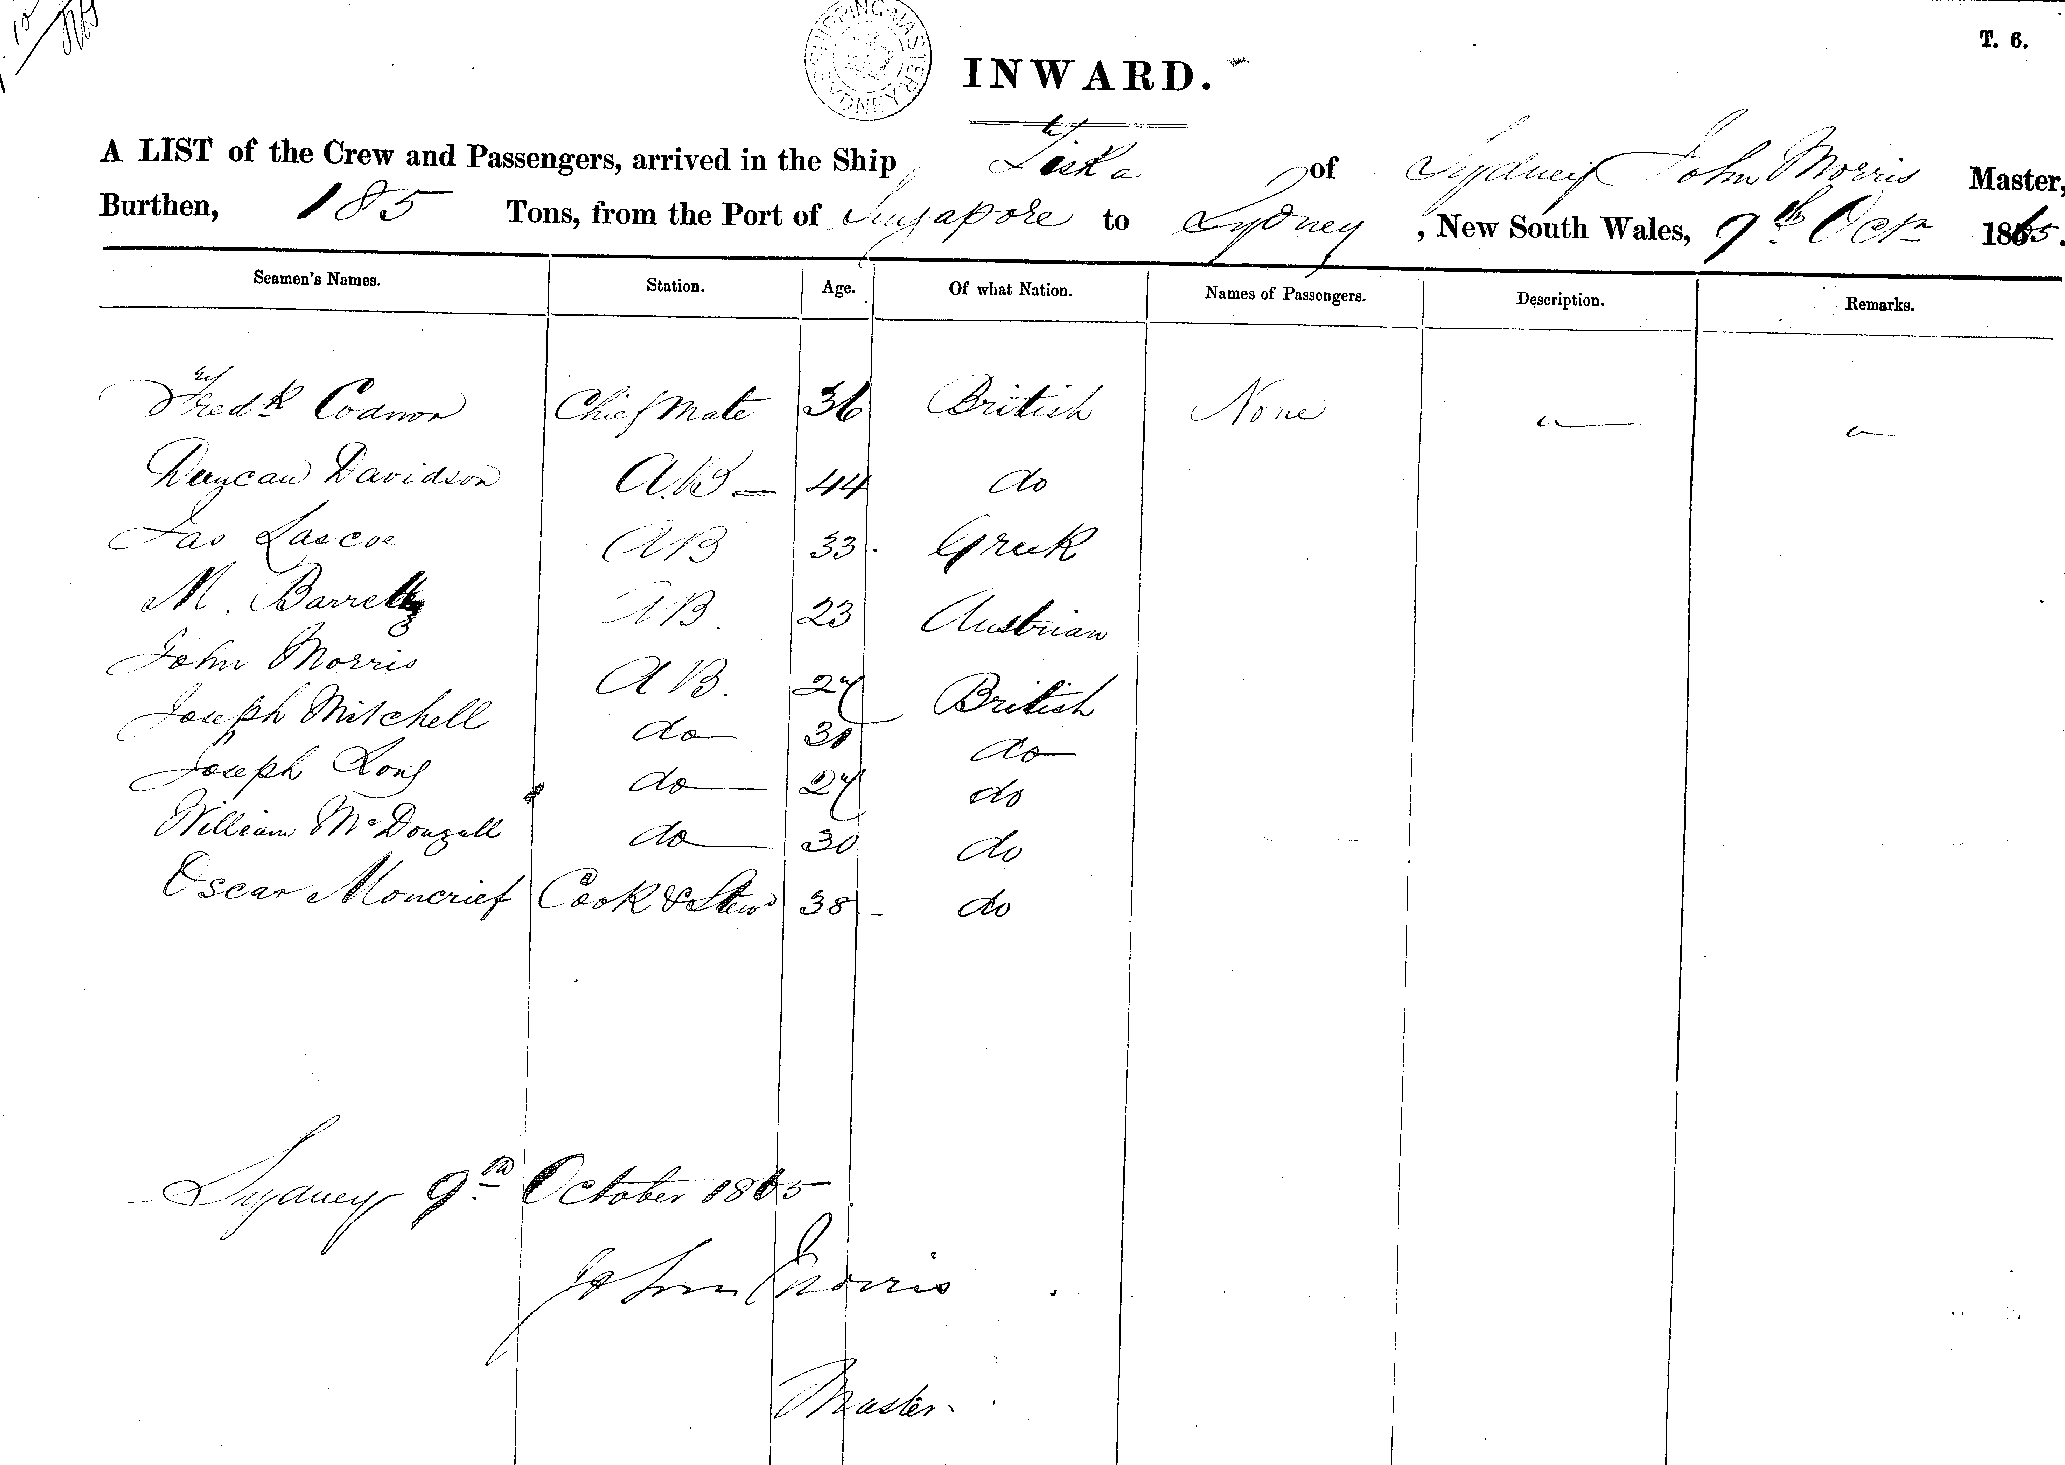 SHIPPING MASTER SYDNEY
T. 6.
INWARD.
A LIST of the Crew and Passengers, arrived in the Ship Tiska of Sydney John Morris Master,
Burthen, 185 Tons, from the Port of Singapore to Sydney, New South Wales, 9th Octr 1865.
Seamen's Names. Station. Age. Of what Nation. Names of Passengers. Description. Remarks.
Fredk Codnor Chief Mate 36 British None — —
Duncan Davidson A.B — 44 do
Jas Lascoe AB 33 Greek
M. Barretty AB. 23 Austrian
John Morris AB. 27 British
Joseph Mitchell do 30 do
Joseph Long do 27 do
William McDougall do 30 do
Oscar Moncrief Cook & Stewd 38 do
Sydney 9th October 1865
John Morris
Master